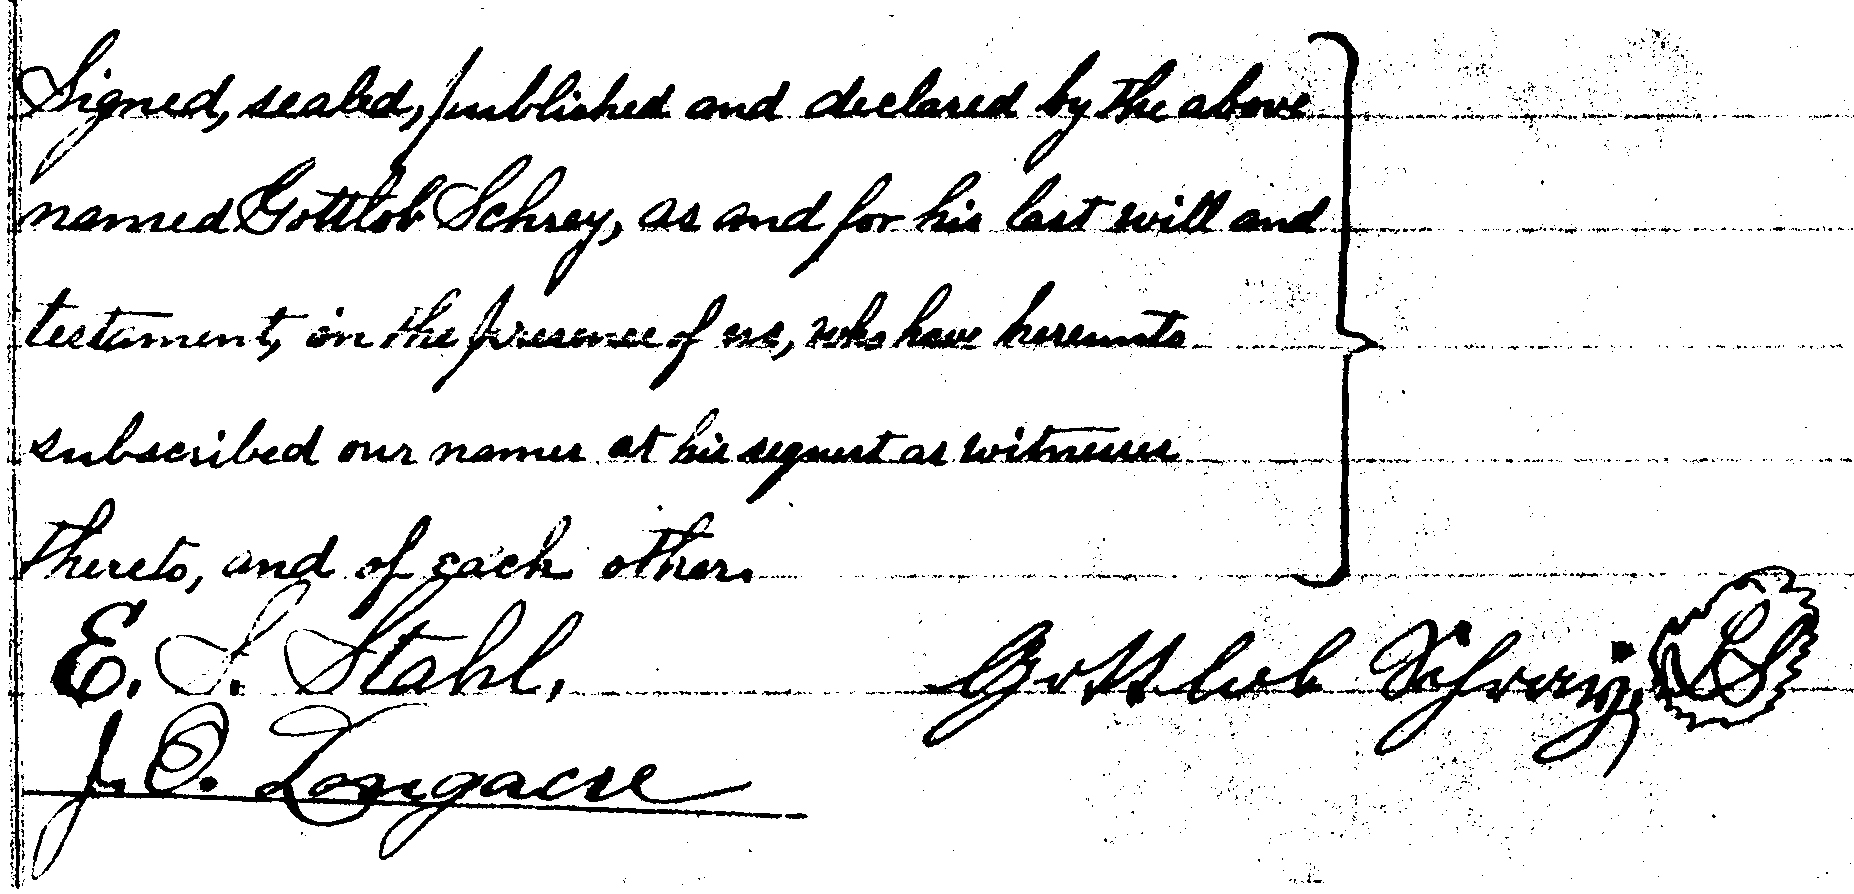 Signed, sealed, published and declared by the above
named Gottlob Schrey, as and for his last will and
testament, in the presence of us, who have hereunto
subscribed our names at his request as witnesses
thereto, and of each other.
E. S. Stahl, Gottlob Schrey, LS
J. O. Longacre